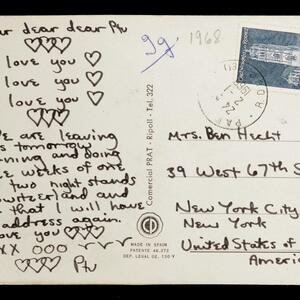 dear dear Ptu
love you
love you
love you
are leaving
tomorrow
ning and doing
weeks of one
two night stands
witzerland and
that I will have
address again.
love you
XX OOO
Ptu
Comercial PRAT - Ripoll - Tel. 322
MADE IN SPAIN
PATENTE 46.272
DEP. LEGAL GE. 130-V
99
1968
Mrs. Ben Hecht
39 West 67th S
New York City
New York
United States of
America